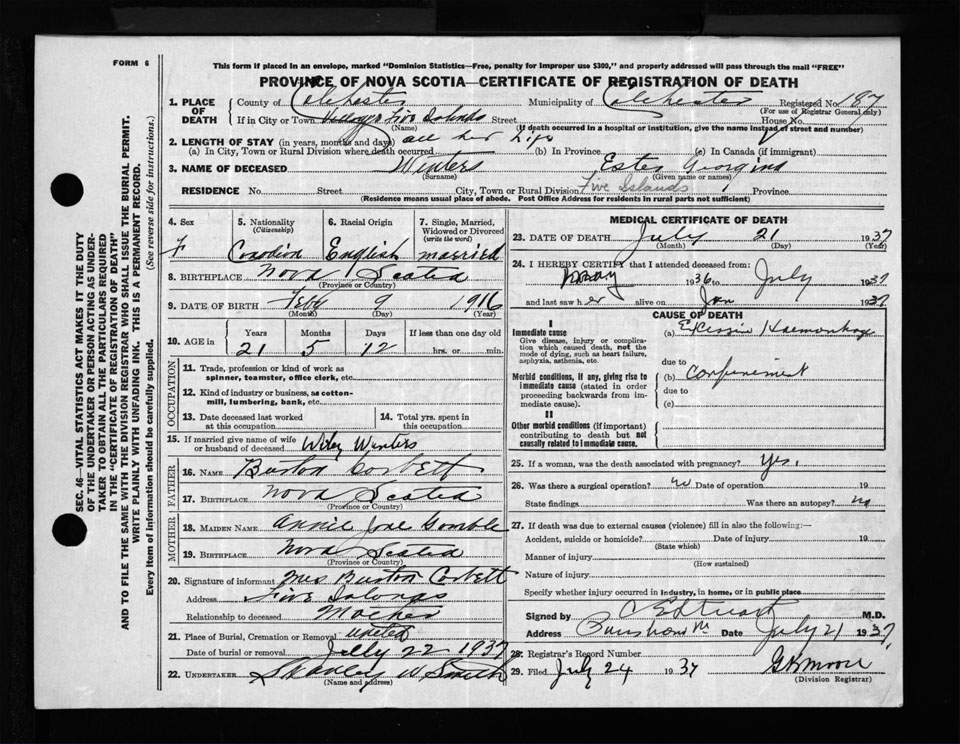 FORM 6
This form if placed in an envelope, marked "Dominion Statistics—Free, penalty for improper use $300," and properly addressed will pass through the mail "FREE"
PROVINCE OF NOVA SCOTIA—CERTIFICATE OF REGISTRATION OF DEATH
1. PLACE OF DEATH
County of Colchester Municipality of Colchester Registered No. 187
(For use of Registrar General only)
If in City or Town Village Five Islands Street House No.
(Name) (If death occurred in a hospital or institution, give the name instead of street and number)
2. LENGTH OF STAY (in years, months and days) all her Life
(a) In City, Town or Rural Division where death occurred (b) In Province (c) In Canada (if immigrant)
3. NAME OF DECEASED Winters Georgina
(Surname) (Given name or names)
RESIDENCE No. Street City, Town or Rural Division Five Islands Province
(Residence means usual place of abode. Post Office Address for residents in rural parts not sufficient)
4. Sex 5. Nationality (Citizenship) 6. Racial Origin 7. Single, Married, Widowed or Divorced (write the word)
F Canadian English married
8. BIRTHPLACE Nova Scotia
(Province or Country)
9. DATE OF BIRTH Feby 9 1916
(Month) (Day) (Year)
10. AGE in Years Months Days If less than one day old
21 5 12 hrs. or min.
OCCUPATION
11. Trade, profession or kind of work as spinner, teamster, office clerk, etc.
12. Kind of industry or business, as cotton-mill, lumbering, bank, etc.
13. Date deceased last worked at this occupation
14. Total yrs. spent in this occupation
15. If married give name of wife or husband of deceased Winters
FATHER
16. NAME Corbett
17. BIRTHPLACE Nova Scotia
(Province or Country)
MOTHER
18. MAIDEN NAME Annie Jane
19. BIRTHPLACE Nova Scotia
(Province or Country)
20. Signature of informant Mrs Corbett
Address Five Islands
Relationship to deceased Mother
21. Place of Burial, Cremation or Removal United
Date of burial or removal July 22 1937
22. UNDERTAKER W Smith
(Name and address)
MEDICAL CERTIFICATE OF DEATH
23. DATE OF DEATH July 21 1937
(Month) (Day) (Year)
24. I HEREBY CERTIFY that I attended deceased from:
May 1936 to July 1937
and last saw her alive on Jan 1937
CAUSE OF DEATH
I
Immediate cause
Give disease, injury or complication which caused death, not the mode of dying, such as heart failure, asphyxia, asthenia, etc.
(a) Excessive Haemorrhage
due to
Morbid conditions, if any, giving rise to immediate cause (stated in order proceeding backwards from immediate cause).
(b) Confinement
due to
(c)
II
Other morbid conditions (if important) contributing to death but not causally related to immediate cause.
25. If a woman, was the death associated with pregnancy? Yes.
26. Was there a surgical operation? no Date of operation 19
State findings Was there an autopsy? no
27. If death was due to external causes (violence) fill in also the following:—
Accident, suicide or homicide? Date of injury 19
(State which)
Manner of injury
(How sustained)
Nature of injury
Specify whether injury occurred in industry, in home, or in public place
Signed by Stuart M.D.
Address Date July 21 1937
28. Registrar's Record Number
29. Filed July 24 1937 Moore
(Division Registrar)
SEC. 46—VITAL STATISTICS ACT MAKES IT THE DUTY
OF THE UNDERTAKER OR PERSON ACTING AS UNDER-
TAKER TO OBTAIN ALL THE PARTICULARS REQUIRED
IN THE "CERTIFICATE OF REGISTRATION OF DEATH"
AND TO FILE THE SAME WITH THE DIVISION REGISTRAR WHO SHALL ISSUE THE BURIAL PERMIT.
WRITE PLAINLY WITH UNFADING INK. THIS IS A PERMANENT RECORD.
Every item of information should be carefully supplied. (See reverse side for instructions.)